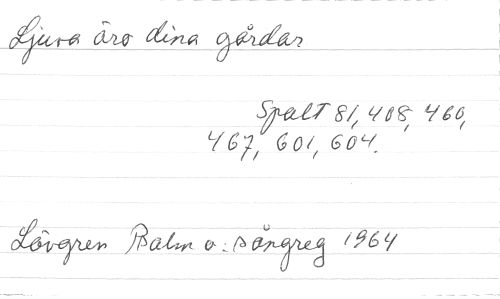 Ljuva äro dina gårdar
Spalt 81, 408, 460,
467, 601, 604.
Lövgren Psalm o. sångreg 1964